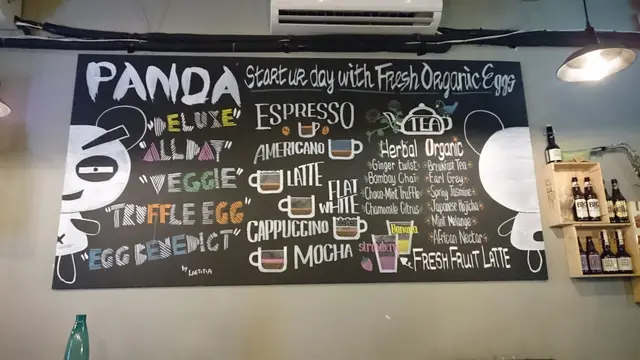 PANDA
Start ur day with Fresh Organic Eggs
"DELUXE"
"ALLDAY"
"VEGGIE"
"TRUFFLE EGG"
"EGG BENEDICT"
by LAETITIA
ESPRESSO
AMERICANO
LATTE
FLAT
WHITE
CAPPUCCINO
MOCHA
TEA
Herbal
Ginger twist
Bombay Chai
Choco-Mint Truffle
Chamomile Citrus
Organic
Breakfast Tea
Earl Grey
Spring Jasmine
Japanese Hojicha
Mint Melange
African Nectar
Banana
strawberry
FRESH FRUIT LATTE